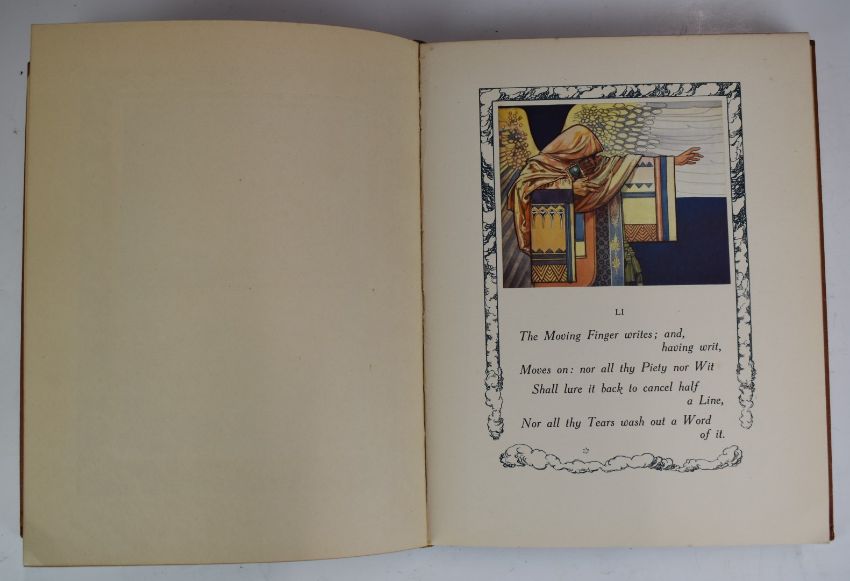 LI
The Moving Finger writes; and,
having writ,
Moves on: nor all thy Piety nor Wit
Shall lure it back to cancel half
a Line,
Nor all thy Tears wash out a Word
of it.